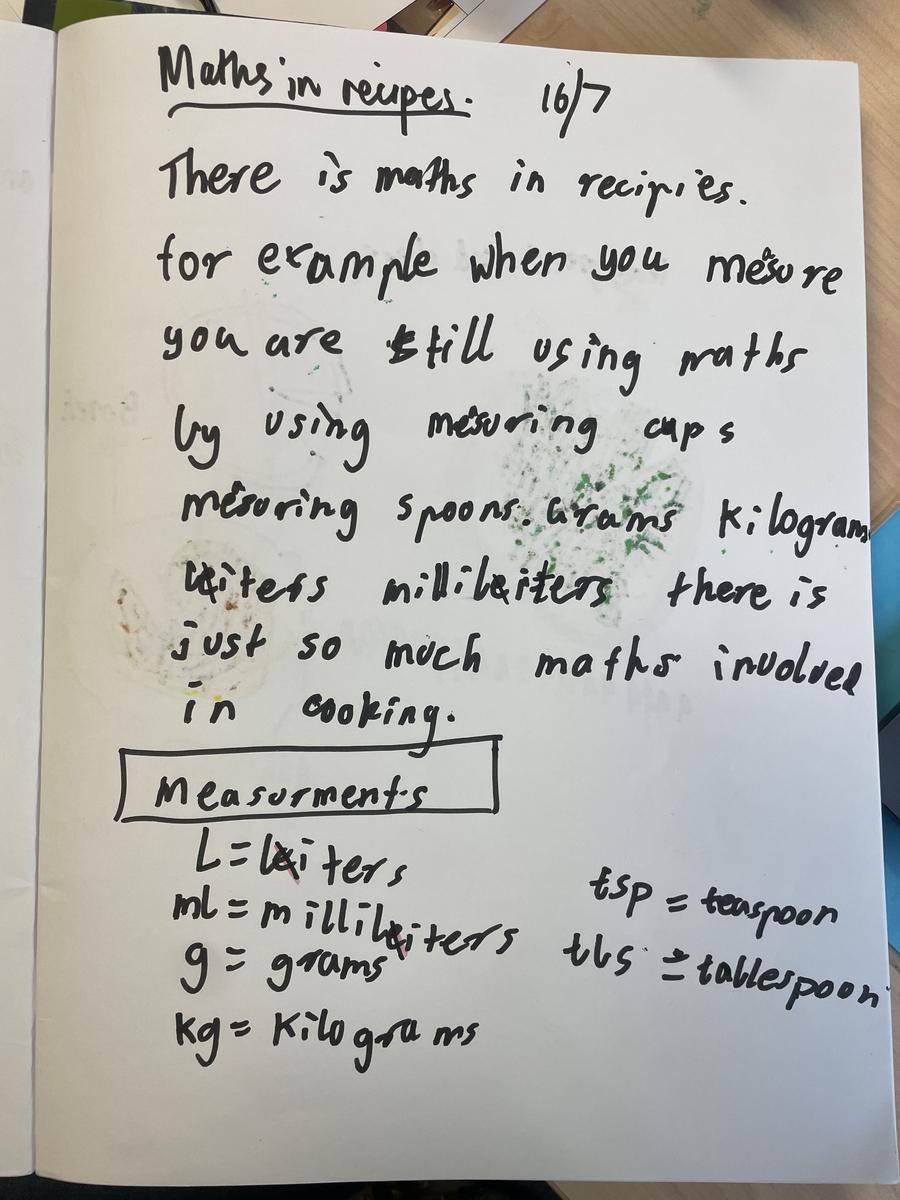 Maths in recipes. 16/7
There is maths in recipies.
for example when you measure
you are still using maths
by using measuring cups
measuring spoons. Grams kilograms
liters milliliters there is
just so much maths involved
in cooking.
Measurments
L = liters
ml = milliliters
g = grams
kg = kilograms
tsp = teaspoon
tbs = tablespoon